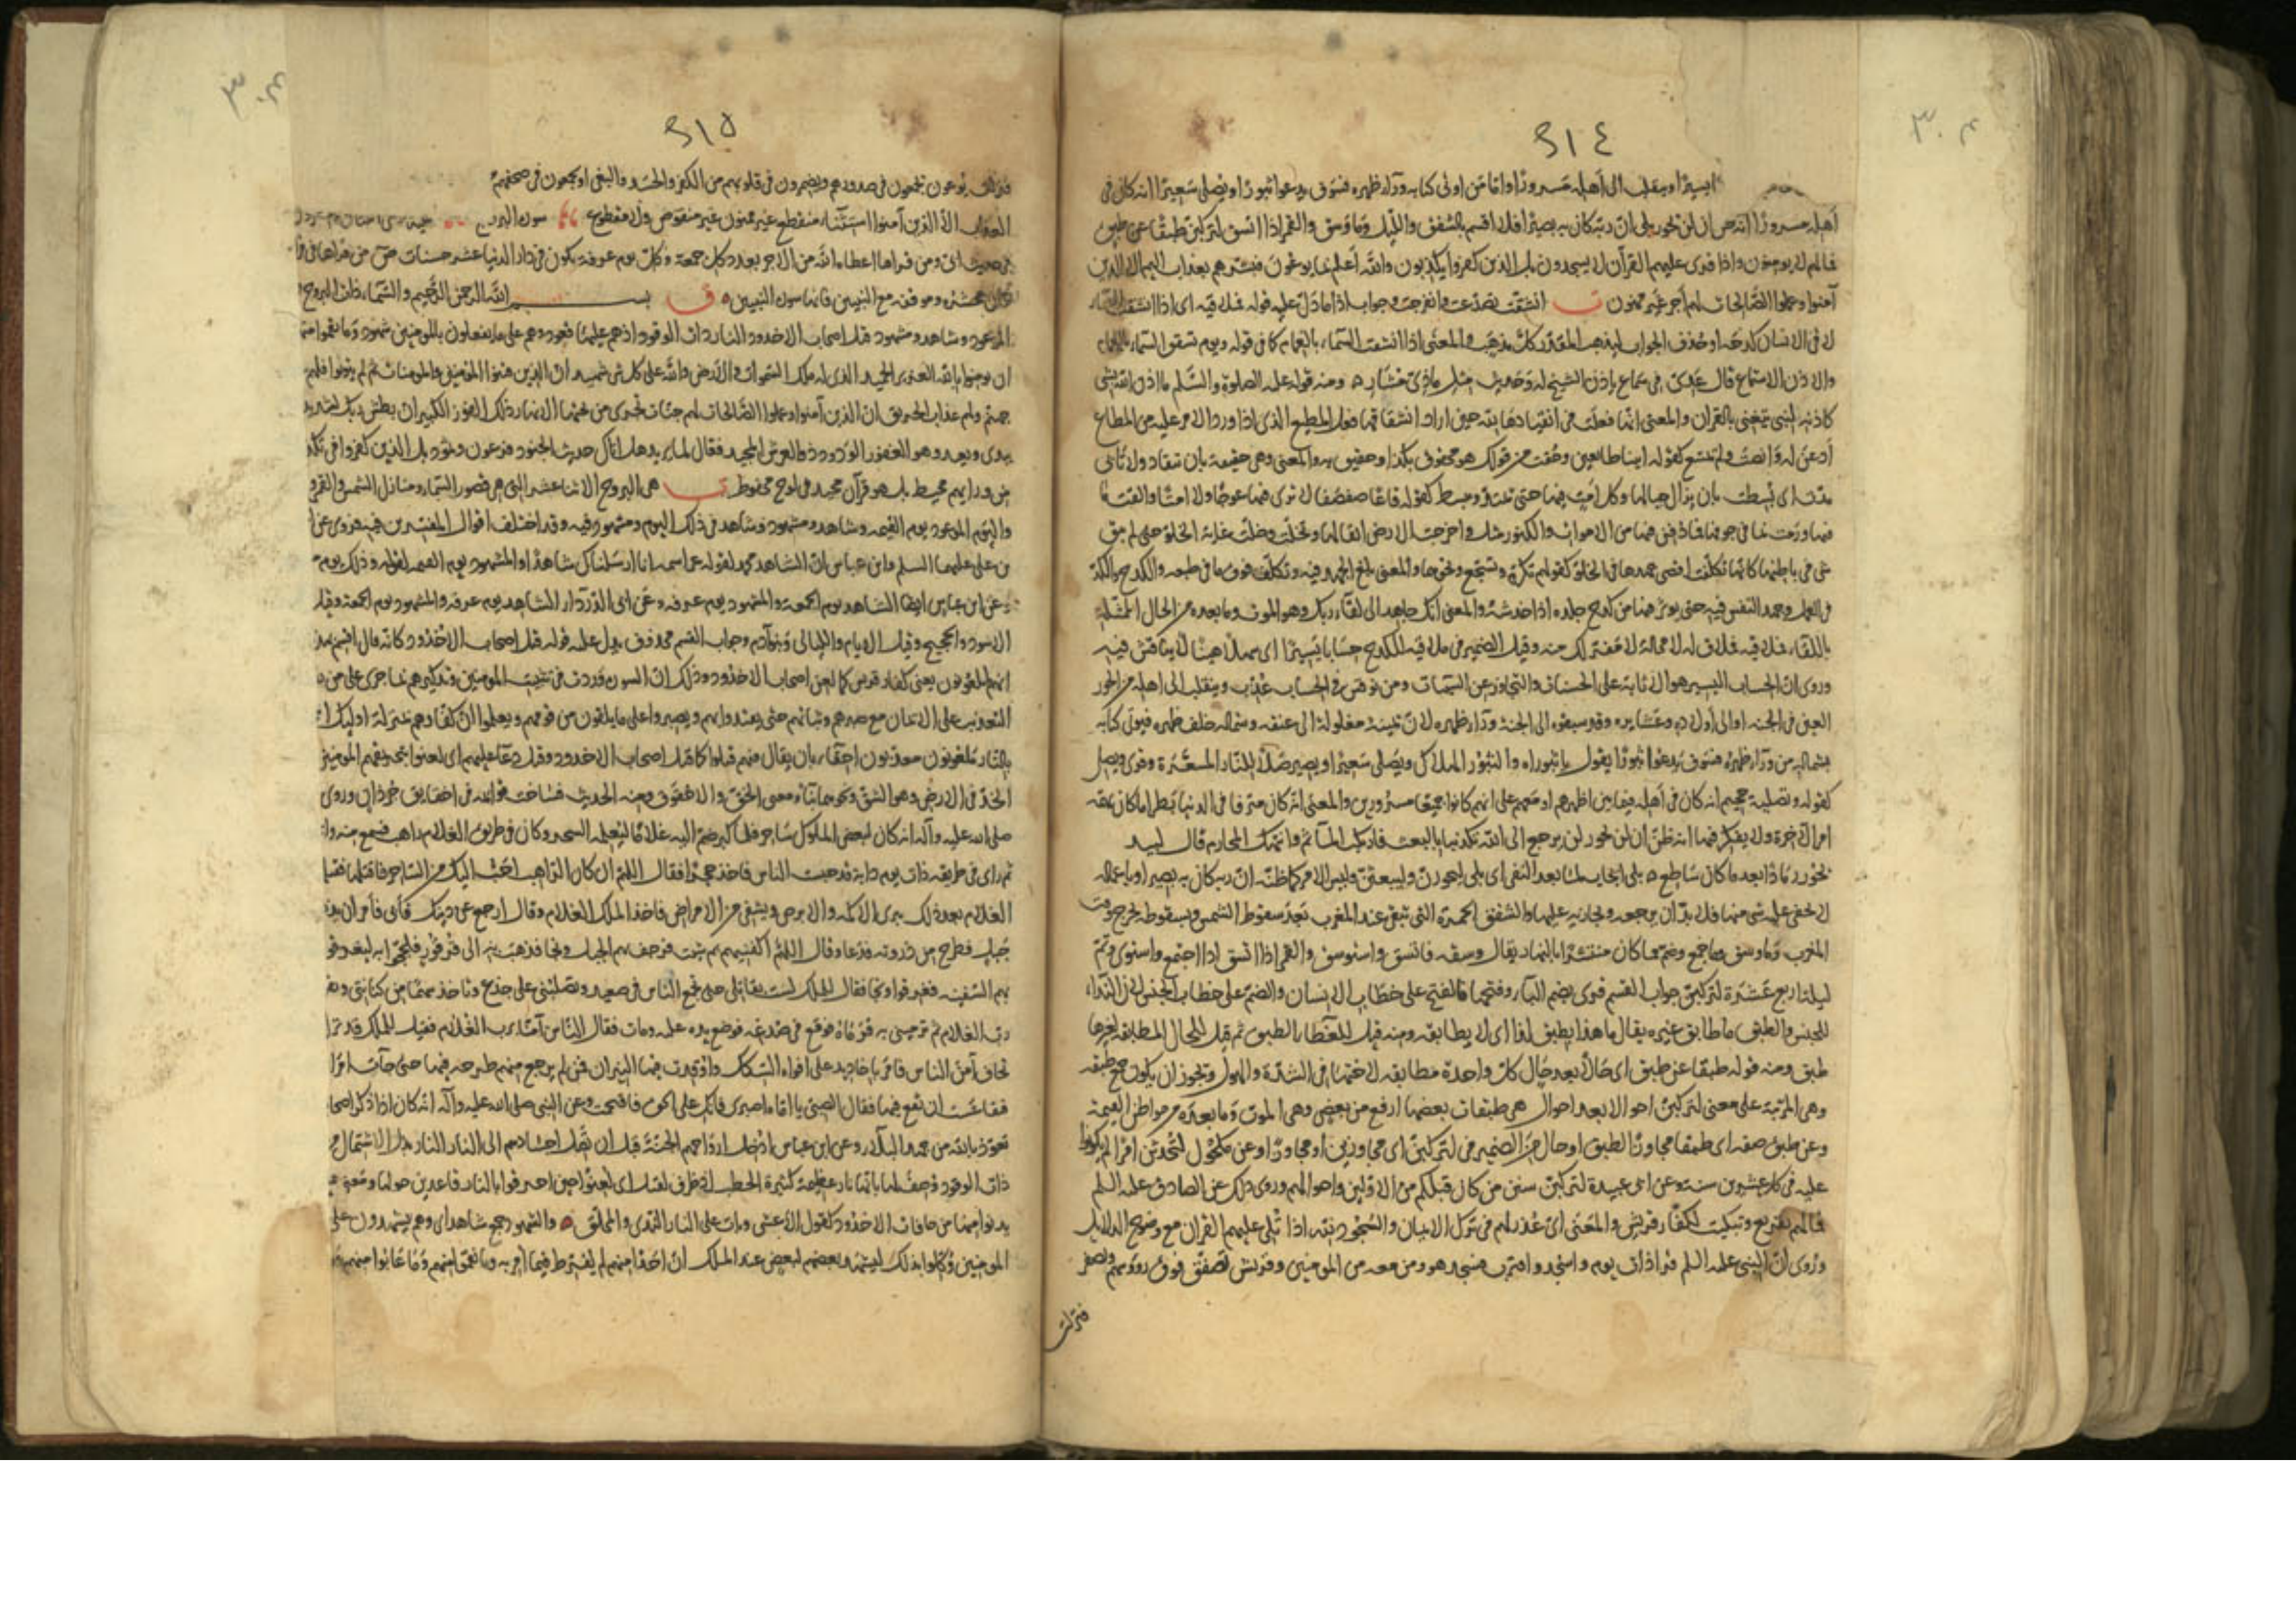 يسيرا وينقلب الى اهله مسرورا واما من اوتى كتابه ورآء ظهره فسوف يدعوا ثبورا ويصلى سعيرا انه كان فى
اهله مسرورا انه ظن ان لن يحور بلى ان ربه كان به بصيرا فلا اقسم بالشفق والليل وما وسق والقمر اذا اتسق لتركبن طبقا عن طبق
فما لهم لا يومنون واذا قرى عليهم القرآن لا يسجدون بل الذين كفروا يكذبون والله اعلم بما يوعون فبشرهم بعذاب اليم الا الذين
آمنوا وعملوا الصالحات لهم اجر غير ممنون انشقت تصدعت وانفرجت وجواب اذا ما دل عليه قوله فملاقيه اى اذا انشقت السماء
لاقى الانسان كدحه او حذف الجواب ليذهب المقدر كل مذهب والمعنى اذا انشقت السماء بالغمام كما فى قوله ويوم تشقق السماء بالغمام
والاذن الاستماع قال عدى فى سماع ياذن الشيخ له وحديث مثل ماذى مشار ومنه قوله عليه الصلوة والسلم ما اذن الله لشى
كاذنه لنبى يتغنى بالقران والمعنى انها فعلت فى انقيادها لله حين اراد انشقاقها فعل المطيع الذى اذا ورد الامر عليه من المطاع
اذعن له وانصت ولم يمتنع كقوله اتينا طائعين وحقت من قولك هو محقوق بكذا وحقيق به والمعنى وهى حقيقة بان تنقاد ولا تتابى
مدت اى بسطت بان يزال جبالها وكل امت فيها حتى تمتد وتنبسط كقوله قاعا صفصفا لا ترى فيها عوجا ولا امتا والقت ما
فيها ورمت بما فى جوفها مما دفن فيها من الاموات والكنوز مثل واخرجت الارض اثقالها وتخلت وخلت غاية الخلو حتى لم يبق
شى فى باطنها كانها تكلفت اقصى جهدها فى الخلو كقولهم تكرم وتشجع ونحوها والمعنى بلغ الجهد فيه وتكلف فوق ما فى طبعه والكدح والكد
فى العمل وجهد النفس فيه حتى يوثر فيها من كدح جلده اذا خدشه والمعنى انك جاهد الى لقاء ربك وهو الموت وما بعده من الحال الممثلة
باللقاء فملاقيه فملاق له لا محالة لا مفر لك منه وقيل الضمير فى ملاقيه للكدح حسابا يسيرا اى سهلا هينا لا يناقش فيه
وروى ان الحساب اليسير هو الاثابة على الحسنات والتجاوز عن السيئات ومن نوقش فى الحساب عذب وينقلب الى اهله من الحور
العين فى الجنة او الى اولاده وعشايره وقد سبقوه الى الجنة ورآء ظهره لان يمينه مغلولة الى عنقه وشماله خلف ظهره فيوتى كتابه
بشماله من ورآء ظهره فسوف يدعوا ثبورا يقول يا ثبوراه والثبور الهلاك ويصلى سعيرا ويصير صلاء للنار المسعرة وقرى ويصلى
كقوله وتصلية جحيم انه كان فى اهله فيما بين اظهرهم او معهم على انهم كانوا جميعا مسرورين والمعنى انه كان مترفا فى الدنيا بطرا ما كان يهمه
امر الاخرة ولا يفكر فيها انه ظن ان لن يحور لن يرجع الى الله تكذيبا بالبعث فارتكب المآثم وانتهك المحارم قال لبيد
يحور رمادا بعد ما كان ساطع بلى ايجاب لما بعد النفى اى بلى ليحورن وليبعثن وليس الامر كما ظنه ان ربه كان به بصيرا وباعماله
لا يخفى عليه شى منها فلا بد ان يرجعه ويجازيه عليها والشفق الحمرة التى تبقى عند المغرب بعد سقوط الشمس وبسقوطه يخرج وقت
المغرب وما وسق وما جمع وضم مما كان منتشرا بالنهار يقال وسقه فاتسق واستوسق والقمر اذا اتسق اذا اجتمع واستوى وتم
ليلة اربع عشرة لتركبن جواب القسم قرى بضم البآء وفتحها فالفتح على خطاب الانسان والضم على خطاب الجنس لان الندآء
للجنس والطبق ما طابق غيره يقال ما هذا بطبق لذا اى لا يطابقه ومنه قيل للغطآء الطبق ثم قيل للحال المطابقة لغيرها
طبق ومنه قوله طبقا عن طبق اى حالا بعد حال كل واحدة مطابقة لاختها فى الشدة والهول ويجوز ان يكون جمع طبقه
وهى المرتبة على معنى لتركبن احوالا بعد احوال هى طبقات بعضها ارفع من بعض وهى الموت وما بعده من مواطن القيمة
وعن طبق صفه اى طبقا مجاوزا لطبق او حال من الضمير فى لتركبن اى مجاوزين او مجاوزا وعن مكحول لتحدثن امرا لم تكونوا
عليه فى كل عشرين سنة وعن ابى عبيدة لتركبن سنن من كان قبلكم من الاولين واحوالهم وروى ذلك عن الصادق عليه السلم
فما لهم تقريع وتبكيت لكفار قريش والمعنى اى عذر لهم فى ترك الايمان والسجود لله اذا تلى عليهم القران مع وضوح الدلايل
وروى ان النبى عليه السلم قرا ذات يوم واسجد واقترب فسجد هو ومن معه من المومنين وقريش تصفق فوق روءسهم وتصفر
فنزلت
فنزلت يوعون يجمعون فى صدورهم ويضمرون فى قلوبهم من الكفر والحسد والبغى او يجمعون فى صحفهم
الا الذين آمنوا استثناء منقطع غير ممنون غير منقوص ولا مقطوع سورة البروج
فى حديث ابى ومن قراها اعطاه الله من الاجر بعدد كل جمعة وكل يوم عرفة يكون فى دار الدنيا عشر حسنات ص من قراها فى
كان محشره وموقفه مع النبيين فانها سورة النبيين بسم الله الرحمن الرحيم والسماء ذات البروج
الموعود وشاهد ومشهود قتل اصحاب الاخدود النار ذات الوقود اذ هم عليها قعود وهم على ما يفعلون بالمومنين شهود وما نقموا منهم
ان يومنوا بالله العزيز الحميد الذى له ملك السموات والارض والله على كل شى شهيد ان الذين فتنوا المومنين والمومنات ثم لم يتوبوا فلهم
جهنم ولهم عذاب الحريق ان الذين آمنوا وعملوا الصالحات لهم جنات تجرى من تحتها الانهار ذلك الفوز الكبير ان بطش ربك لشديد
يبدى ويعيد وهو الغفور الودود ذو العرش المجيد فعال لما يريد هل اتاك حديث الجنود فرعون وثمود بل الذين كفروا فى تكذ
من ورايهم محيط بل هو قرآن مجيد فى لوح محفوظ هى البروج الاثنا عشر التى هى قصور السماء ومنازل الشمس والقمر
واليوم الموعود يوم القيمة وشاهد ومشهود وشاهد فى ذلك اليوم ومشهود فيه وقد اختلف اقوال المفسرين فيه فروى عن
بن على عليهما السلم وابن عباس ان الشاهد محمد لقوله عز اسمه انا ارسلناك شاهدا والمشهود يوم القيمة لقوله وذلك يوم
وعن ابن عباس ايضا الشاهد يوم الجمعة والمشهود يوم عرفة وعن ابى الدردآء الشاهد يوم عرفة والمشهود يوم الجمعة وقيل
الاسود والحجيج وقيل الايام والليالى وبنو آدم وجواب القسم محذوف يدل عليه قوله قتل اصحاب الاخدود كانه قال اقسم بهذه
انهم ملعونون يعنى كفار قريش كما لعن اصحاب الاخدود وذلك ان السورة وردت فى تثبيت المومنين وتذكيرهم بما جرى على من
التعذيب على الايمان مع صبرهم وثباتهم حتى يقتدوا بهم ويصبروا على ما يلقون من قومهم ويعلموا ان كفارهم بمنزلة اوليك
بالنار ملعونون معذبون احقاء بان يقال فيهم قتلوا كما قتل اصحاب الاخدود وقيل دعاء عليهم اى لعنوا بتحريقهم المومنين
الخد فى الارض وهو الشق ونحوهما بناء ومعنى الخق والاخقوق ومنه الحديث فساخت قوائمه فى اخاقيق جرذان وروى
صلى الله عليه وآله انه كان لبعض الملوك ساحر فلما كبر ضم اليه غلاما ليعلمه السحر وكان فى طريق الغلام راهب فسمع منه
ثم راى فى طريقه ذات يوم دابة قد حبست الناس فاخذ حجرا فقال اللهم ان كان الراهب احب اليك من الساحر فاقتلها فقتلها
الغلام بعد ذلك يبرى الاكمه والابرص ويشفى من الامراض فاخذ الملك الغلام وقال ارجع عن دينك فابى فامر ان
جبل فطرح من ذروته فدعا وقال اللهم اكفنيهم بم شئت فرجف بهم الجبل ونجا فذهب به الى قرقور فلججوا به ليغرقوه
بهم السفينة فغرقوا ونجا فقال للملك لست بقاتلى حتى تجمع الناس فى صعيد وتصلبنى على جذع وتاخذ سهما من كنانتى
رب الغلام ثم ترمينى به فرماه فوقع فى صدغه فوضع يده عليه ومات فقال الناس آمنا برب الغلام فقيل للملك قد نزل
تخاف آمن الناس فامر باخاديد على افواه السكك واوقدت فيها النيران فمن لم يرجع منهم طرحه فيها حتى جآءت امراة
فتقاعست ان تقع فيها فقال الصبى يا اماه اصبرى فانك على الحق فاقتحمت وعن النبى صلى الله عليه وآله انه كان اذا ذكر اصحا
تعوذ بالله من جهد البلاء وعن ابن عباس ادخل ارواحهم الجنة قبل ان تصل اجسادهم الى النار النار بدل الاشتمال
ذات الوقود وصف لها بانها نار عظيمة كثيرة الحطب اذ ظرف لقتل اى لعنوا حين احرقوا بالنار قاعدين حولها ومعنى
يدنوا منها من حافات الاخدود كقول الاعشى وبات على النار الندى والمحلق والشهود جمع شاهد اى وهم يشهدون على
المومنين وكلوا بذلك ليشهد بعضهم لبعض عند الملك ان احدا منهم لم يفرط فيما امر به وما نقموا منهم وما عابوا منهم